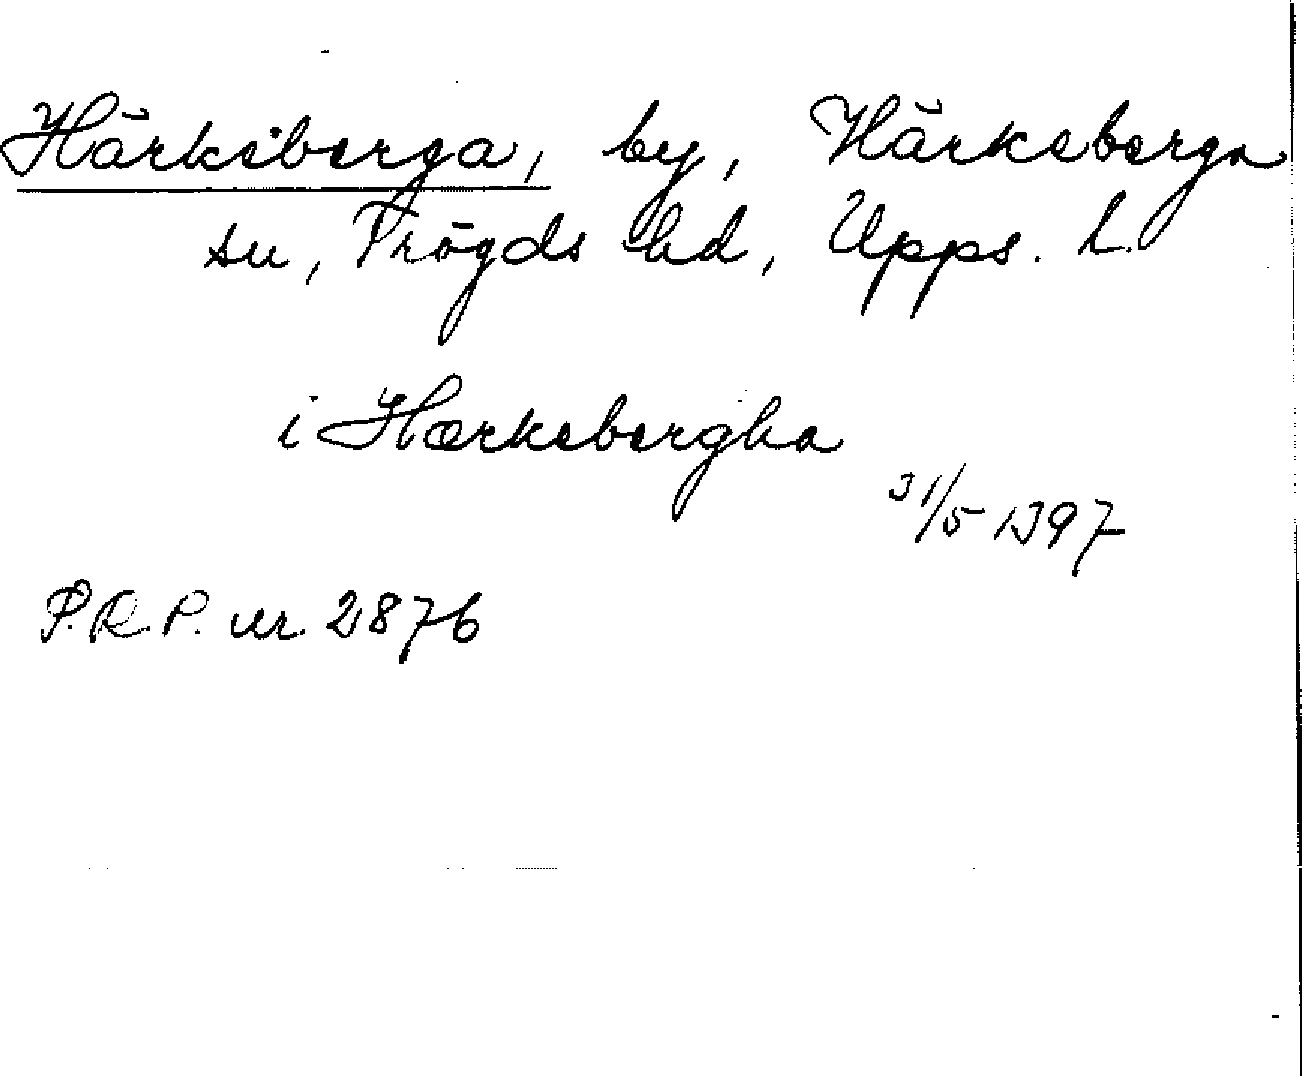 Härkeberga, by, Härkeberga
sn, Trögds hd, Upps. L.
i Hærkebergha
31/5 1397
P.R.P. nr. 2876